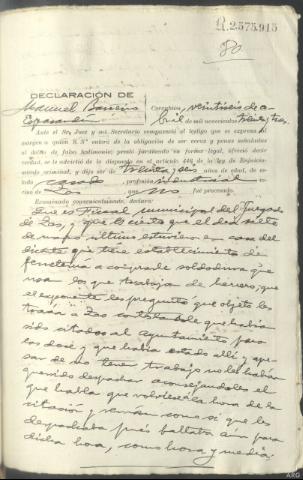 R.2.575.915
80
DECLARACIÓN DE
Manuel Barreiro
Espasandín
Corcubión, veintiseis de a-
bril de mil novecientos treinta y tres.
Ante el Sr. Juez y mi Secretario compareció el testigo que se expresa al
margen a quien S. S.ª enteró de la obligación de ser veraz y penas señaladas
al delito de falso testimonio; prestó juramento en forma legal, ofreció decir
verdad, se le advirtió de lo dispuesto en el artículo 446 de la ley de Enjuicia-
miento criminal, y dijo ser de treinta y seis años de edad, de es-
tado casado, profesión industrial
no de Zas que no fué procesado.
Examinado convenientemente, declara:
Que es Fiscal municipal del Juzgado
de Zas, y que es cierto que el dia siete
de marzo último estuvieron en casa del
dicente que tiene establecimiento de
ferretería a comprarle soldadura que
usan los que trabajan de herrero; que
el exponente les preguntó que objeto les
traía a Zas contándole que habían
sido citados al ayuntamiento para
las doce y que había estado allí y ape-
sar de no tener trabajo no le habían
querido despachar aconsejándoles el
que habla que volviese a la hora de la
citación y verían como si que les
despachaba pues faltaba aun para
dicha hora, como hora y media.
ARG